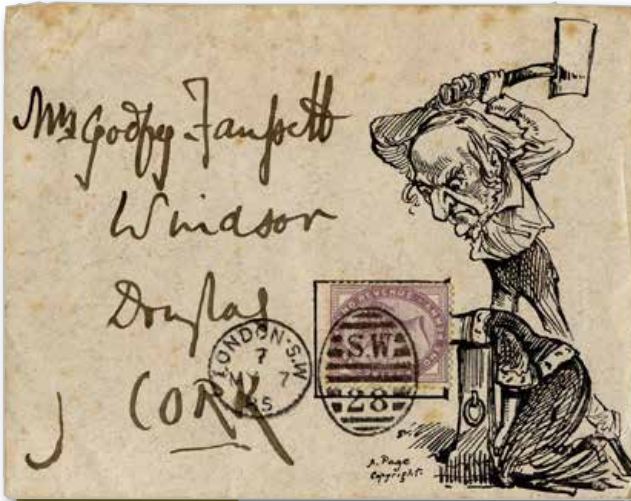 Mrs Godfrey-Faussett
Windsor
Douglas
CORK
LONDON·S.W
7
MY 7
85
S.W
28
A. Page
Copyright.